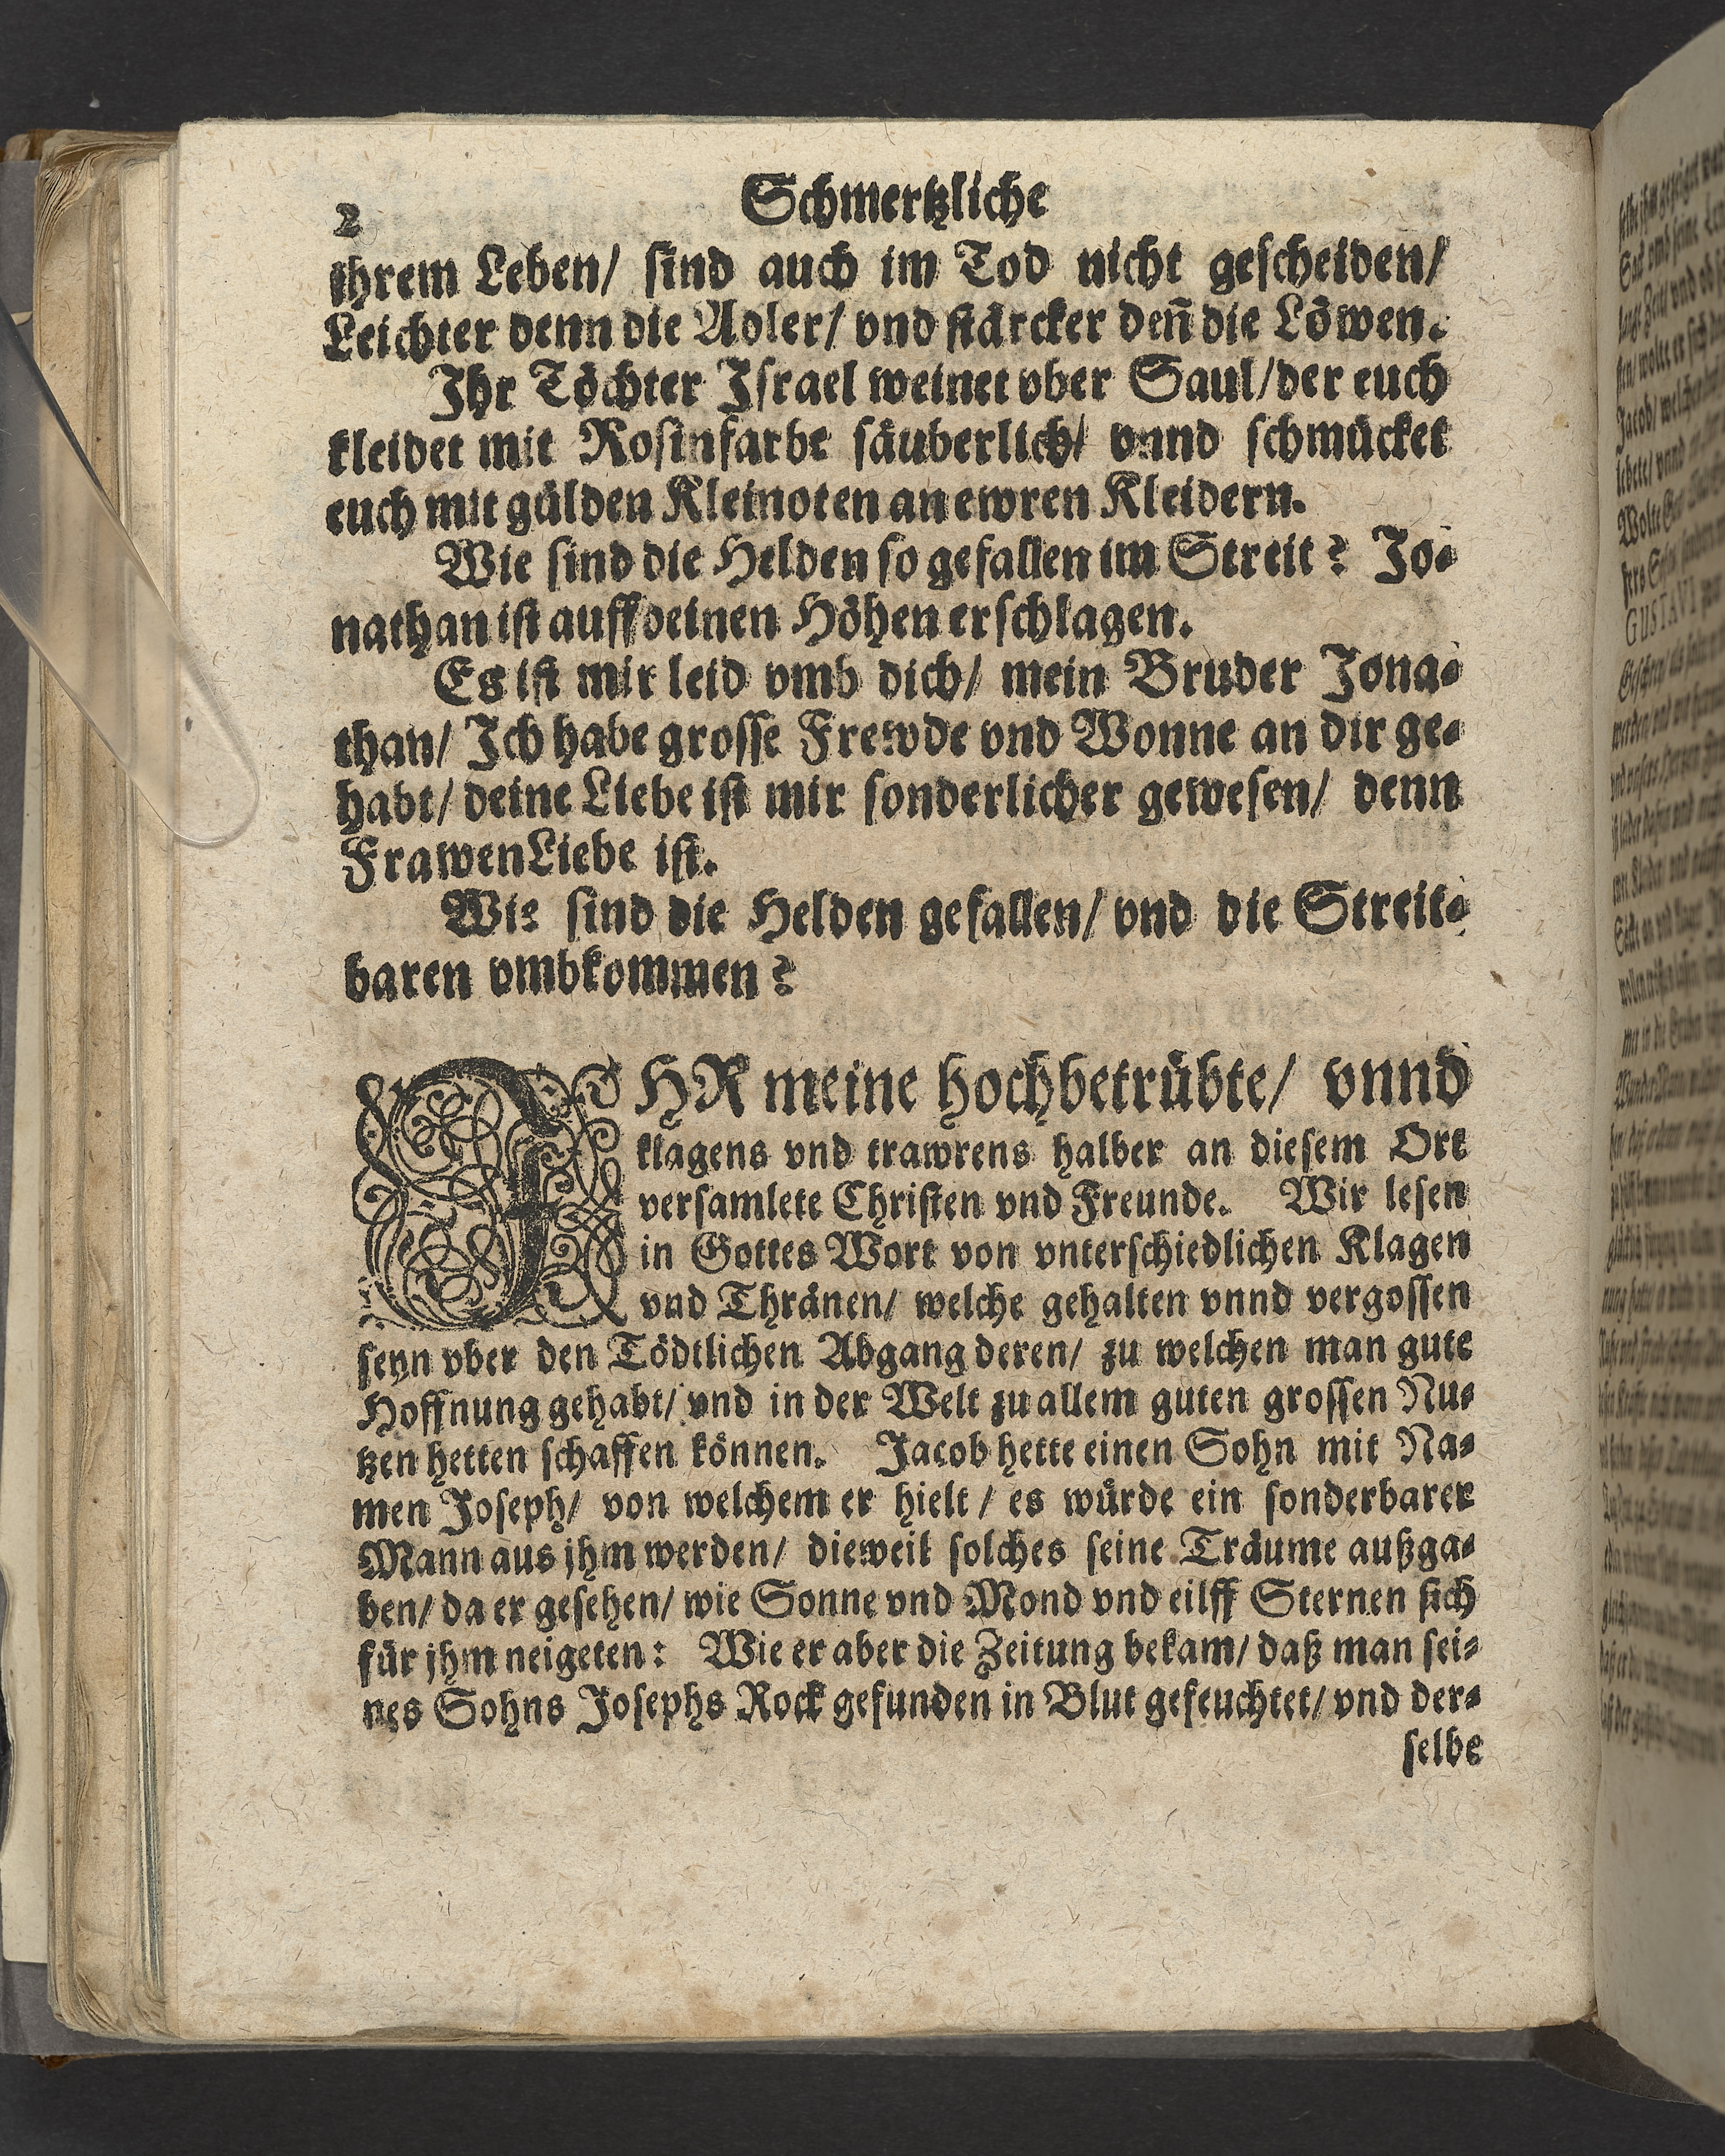 2
Schmertzliche
ihrem Leben/ sind auch im Tod nicht gescheiden/
Leichter denn die Adler/ vnd stärcker deñ die Löwen.
Ihr Töchter Israel weinet vber Saul/ der euch
kleidet mit Rosinfarbe säuberlich/ vnnd schmücket
euch mit gülden Kleinoten an ewren Kleidern.
Wie sind die Helden so gefallen im Streit? Jo⸗
nathan ist auff deinen Höhen erschlagen.
Es ist mir leid vmb dich/ mein Bruder Jona⸗
than/ Ich habe grosse Frewde vnd Wonne an dir ge⸗
habt/ deine Liebe ist mir sonderlicher gewesen/ denn
FrawenLiebe ist.
Wie sind die Helden gefallen/ vnd die Streit⸗
baren vmbkommen?
IHR meine hochbetrübte/ vnnd
klagens vnd trawrens halber an diesem Ort
versamlete Christen vnd Freunde. Wir lesen
in Gottes Wort von vnterschiedlichen Klagen
vnd Thränen/ welche gehalten vnnd vergossen
seyn vber den Tödtlichen Abgang deren/ zu welchen man gute
Hoffnung gehabt/ vnd in der Welt zu allem guten grossen Nu⸗
tzen hetten schaffen können. Jacob hette einen Sohn mit Na⸗
men Joseph/ von welchem er hielt/ es würde ein sonderbarer
Mann aus jhm werden/ dieweil solches seine Träume außga⸗
ben/ da er gesehen/ wie Sonne vnd Mond vnd eilff Sternen sich
für jhm neigeten: Wie er aber die Zeitung bekam/ daß man sei⸗
nes Sohns Josephs Rock gefunden in Blut gefeuchtet/ vnd der⸗
selbe